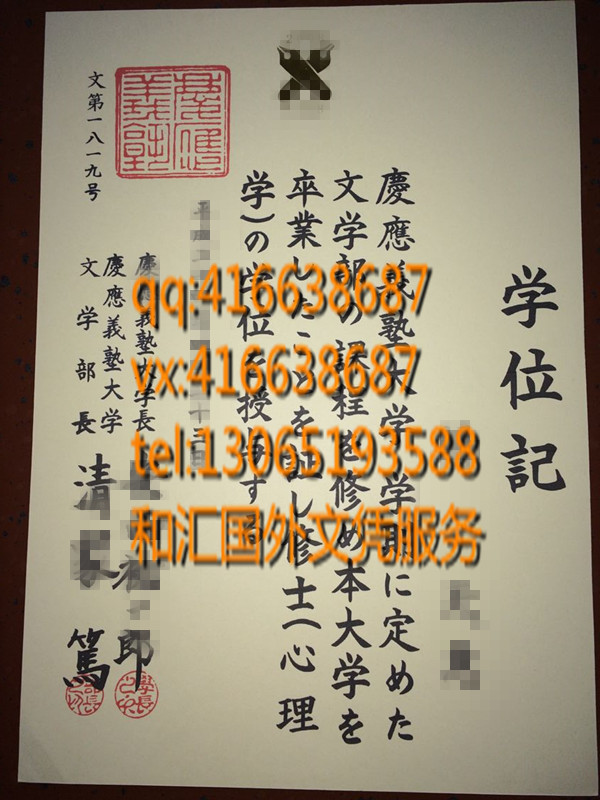 学位記
慶應義塾大学学則に定めた
文学部の課程を修め本大学を
卒業したことを証し修士(心理
学)の学位を授与する
慶應義塾大学長
慶應義塾大学
文学部長
郎
清
篤
文第一八一九号
慶應義塾
qq:416638687
vx:416638687
tel:13065193588
和汇国外文凭服务